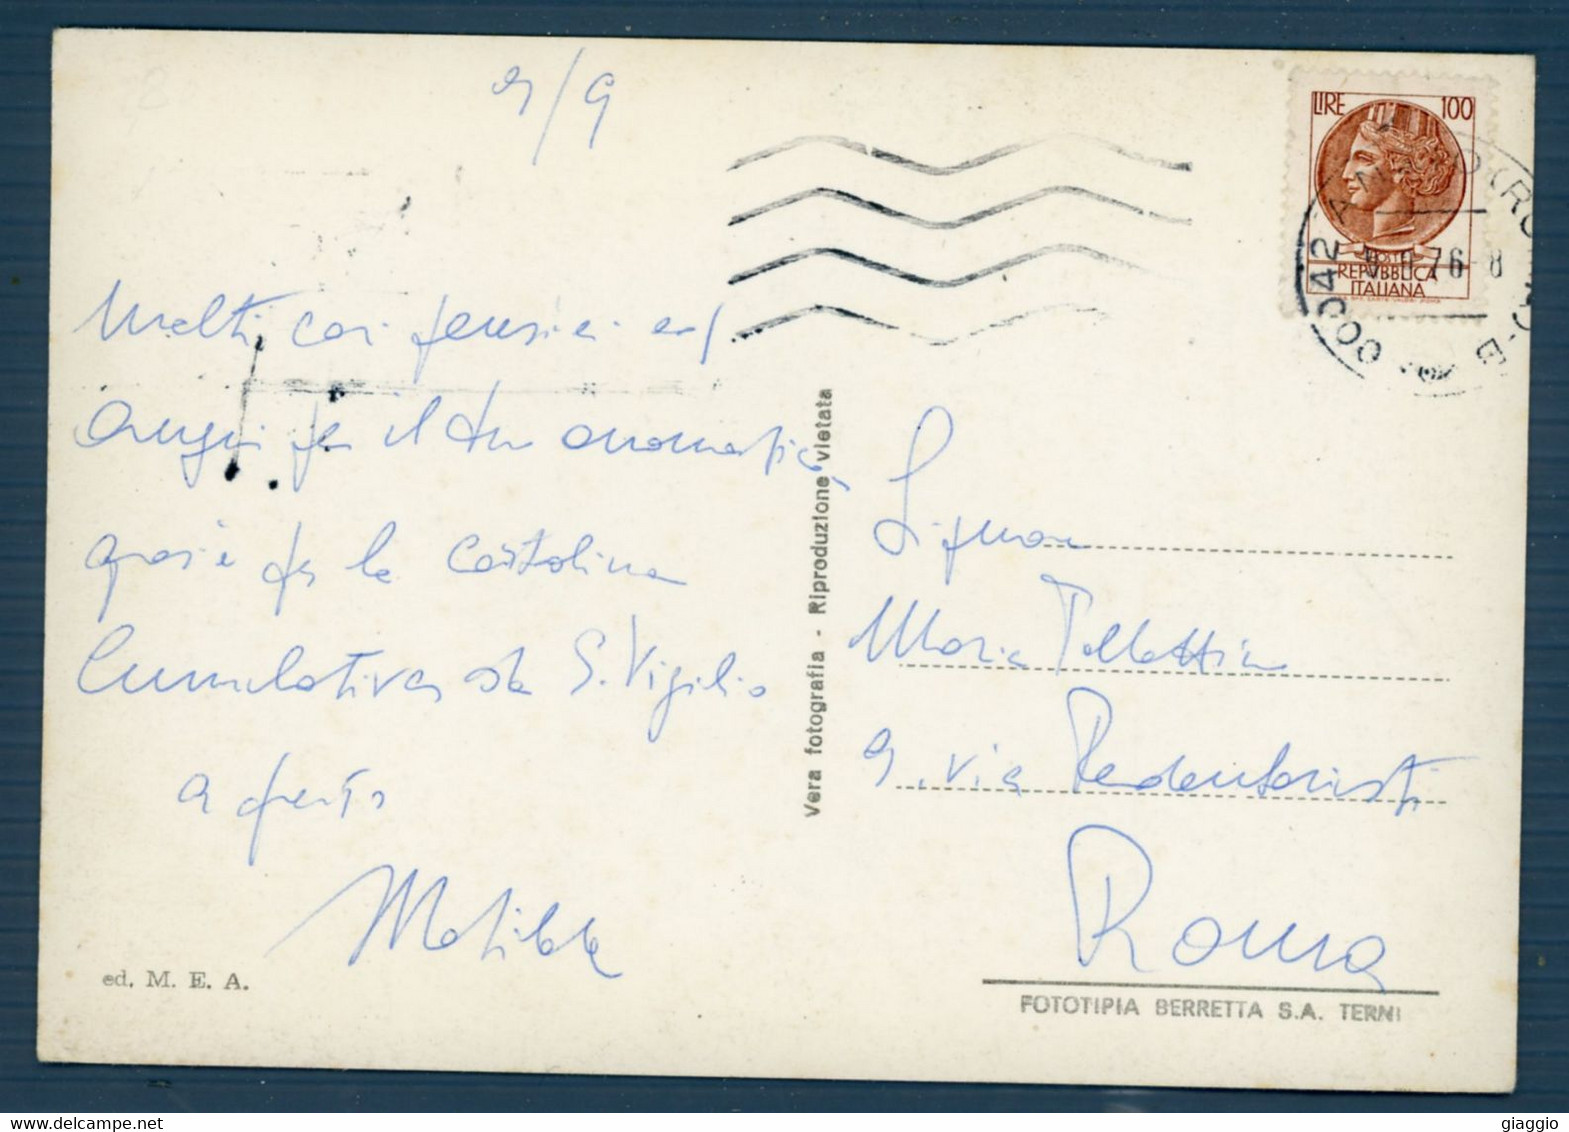 9/9
LIRE 100
POSTE
REPVBBLICA
ITALIANA
00042 ANZIO (ROMA)
76-8
Molti cari pensieri ed
auguri per il tuo onomastico,
grazie per la cartolina
Cumulativa da S. Vigilio
a presto
Matilde
ed. M. E. A.
Vera fotografia - Riproduzione vietata
Signora
Maria
9. via Redentoristi
Roma
FOTOTIPIA BERRETTA S.A. TERNI
www.delcampe.net
giaggio